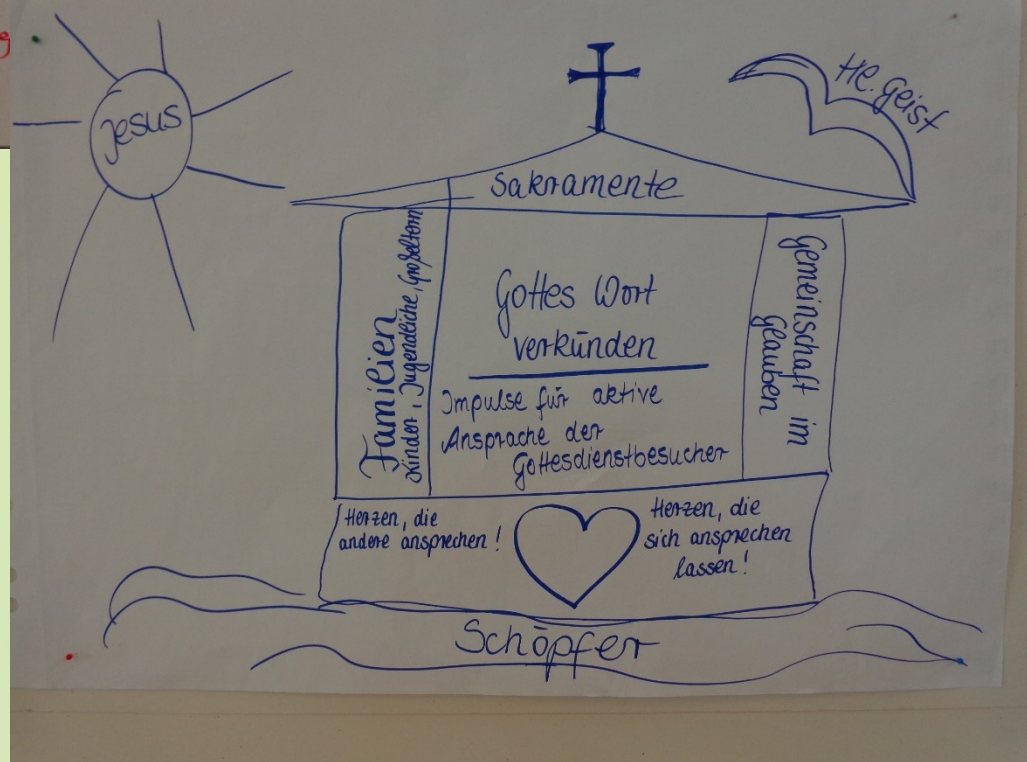 Jesus
Hl. Geist
Sakramente
Familien
Kinder, Jugendliche, Großeltern
Gottes Wort
verkünden
Impulse für aktive
Ansprache der
Gottesdienstbesucher
Gemeinschaft im
Glauben
Herzen, die
andere ansprechen!
Herzen, die
sich ansprechen
lassen!
Schöpfer